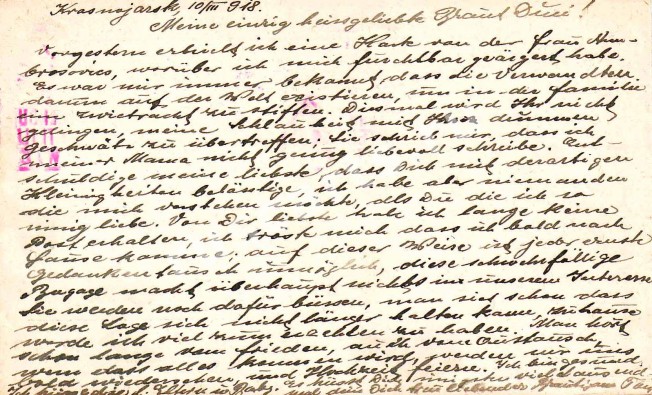 Krasnojarsk, 10/III 918.
Meine einzig heissgeliebte Braut Duci!
Vorgestern erhielt ich eine Karte von der Frau Am-
brosovics, worüber ich mich furchtbar geärgert habe.
Es war mir immer bekannt, dass die Verwandten
darum auf der Welt existieren, um in der Familie
zwietracht zu stiften. Diesmal wird Ihr nicht
gelingen, meine Schlauheit mit Ihren dummen
geschwätz zu übertreffen. Sie schrieb mir, dass ich
meiner Mama nicht genug liebevoll schreibe. Ent-
schuldige meine liebste, dass Dich mit derartigen
Kleinigkeiten belästige, ich habe aber niemanden
die mich verstehen möchte, als Du die ich so
innig liebe. Von Dir liebste hab ich lange keine
Post erhalten, ich tröste mich dass ich bald nach
Hause komme, auf dieser Weise ist jeder ernste
Gedankentausch unmöglich, diese
Bagage macht überhaupt nichts in unseren Interesse
Sie werden noch dafür büssen, man sieht schon dass
diese Lage sich nicht länger halten kann, zuhause
werde ich viel zum haben. Man hört
schon lange vom frieden, auch vom Austausch,
wenn dass alles kommen wird, werden wir uns
bald wiedersehen, und Hochzeit feiern. Ich bin gesund,
Es küsst Dich innig viel und
und Dich liebender Bräutigam